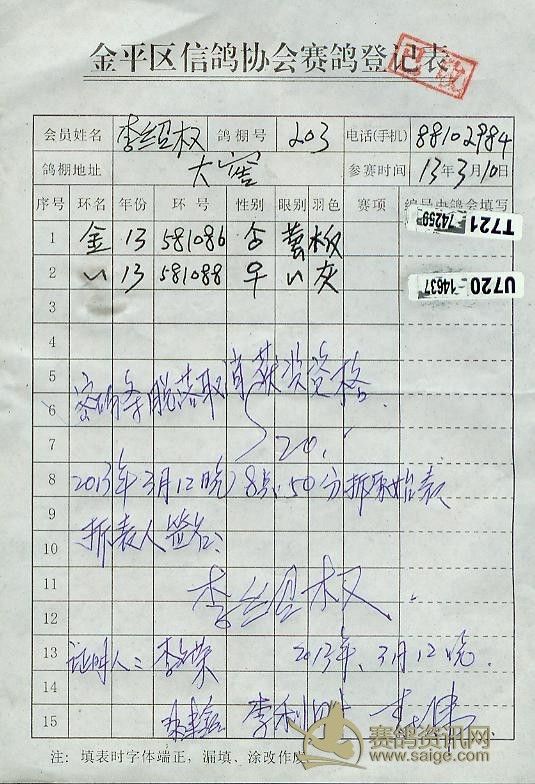 金平区信鸽协会赛鸽登记表
会员姓名 李绍权 鸽棚号 203 电话(手机) 88102984
鸽棚地址 大窖 参赛时间 13年3月10日
序号 环名 年份 环号 性别 眼别 羽色 赛项 编号由鸽会填写
1 金 13 581086 黄 T721 74259
2 〃 13 581088 〃 灰 U720 14637
3
4
5
密码条脱落取消获奖资格
6
7
20.
8 2013年3月12晚8点:50分拆原始表
9
拆表人签名:
10
11
李绍权
12
13 证明人: 2013年3月12晚
14
李利
15
注:填表时字体端正,漏填、涂改作废
赛鸽资讯网
www.saige.com